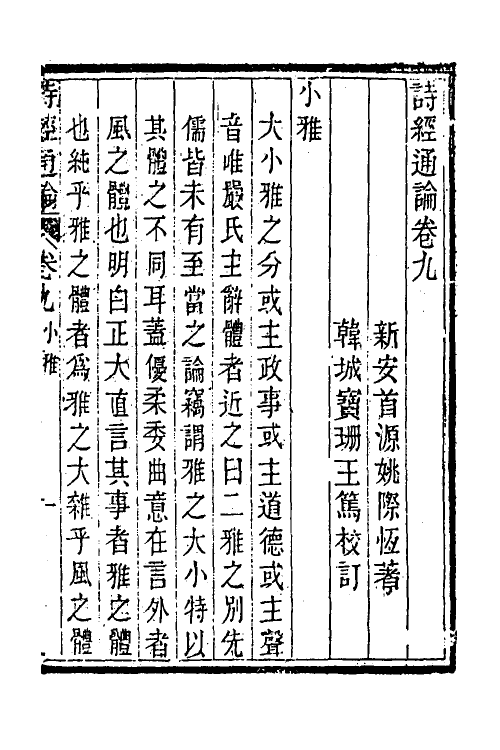 詩經通論卷九
新安首源姚際恆著
韓城寶珊王篤校訂
小雅
大小雅之分或主政事或主道德或主聲
音唯嚴氏主辭體者近之曰二雅之別先
儒皆未有至當之論竊謂雅之大小特以
其體之不同耳蓋優柔委曲意在言外者
風之體也明白正大直言其事者雅之體
也純乎雅之體者爲雅之大雜乎風之體
詩經通論 卷九 小雅 一